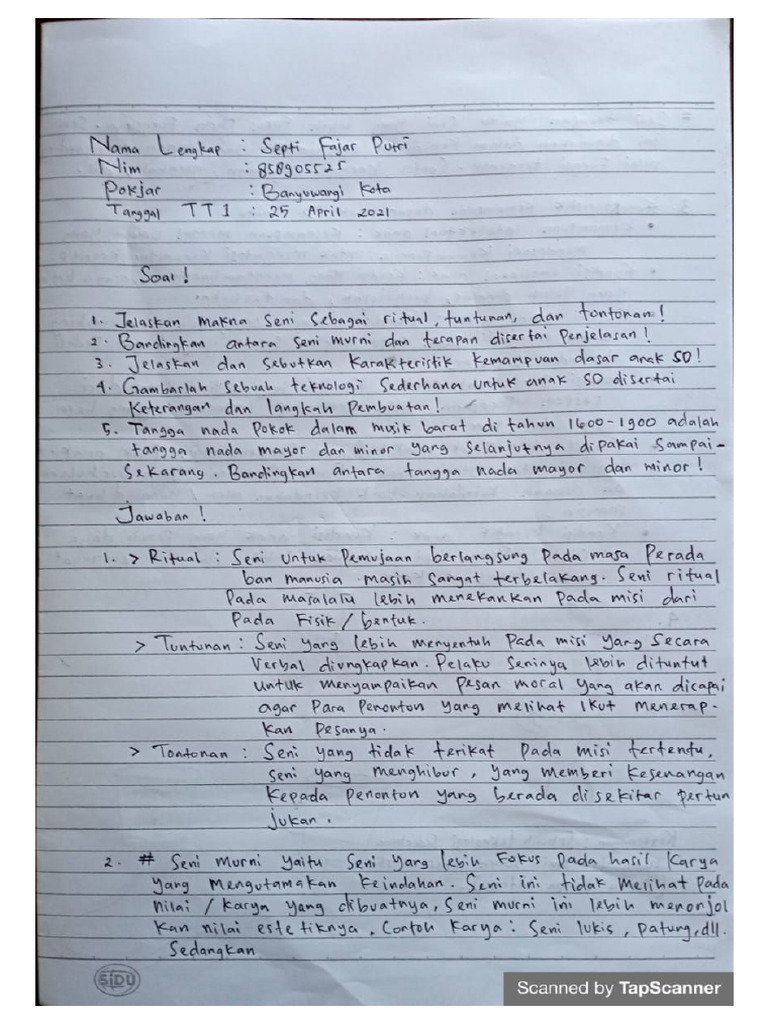 Nama Lengkap : Septi Fajar Putri
Nim : 858905525
Pokjar : Banyuwangi Kota
Tanggal TT1 : 25 April 2021
Soal !
1. Jelaskan makna seni sebagai ritual, tuntunan, dan tontonan !
2. Bandingkan antara seni murni dan terapan disertai penjelasan !
3. Jelaskan dan sebutkan karakteristik kemampuan dasar anak SD !
4. Gambarlah sebuah teknologi sederhana untuk anak SD disertai
keterangan dan langkah pembuatan !
5. Tangga nada pokok dalam musik barat di tahun 1600-1900 adalah
tangga nada mayor dan minor yang selanjutnya dipakai sampai-
sekarang. Bandingkan antara tangga nada mayor dan minor !
Jawaban !
1. > Ritual : Seni untuk pemujaan berlangsung pada masa perada
ban manusia masih sangat terbelakang. Seni ritual
pada masalalu lebih menekankan pada misi dari
pada fisik / bentuk.
> Tuntunan : Seni yang lebih menyentuh pada misi yang secara
verbal diungkapkan. Pelaku seninya lebih dituntut
untuk menyampaikan pesan moral yang akan dicapai
agar para penonton yang melihat ikut menerap-
kan pesanya.
> Tontonan : Seni yang tidak terikat pada misi tertentu,
seni yang menghibur, yang memberi kesenangan
kepada penonton yang berada disekitar pertun
jukan.
2. # Seni murni yaitu seni yang lebih fokus pada hasil karya
yang mengutamakan keindahan. Seni ini tidak melihat pada
nilai / karya yang dibuatnya, seni murni ini lebih menonjol
kan nilai estetiknya, Contoh karya : Seni lukis, patung, dll.
Sedangkan
SIDU
Scanned by TapScanner